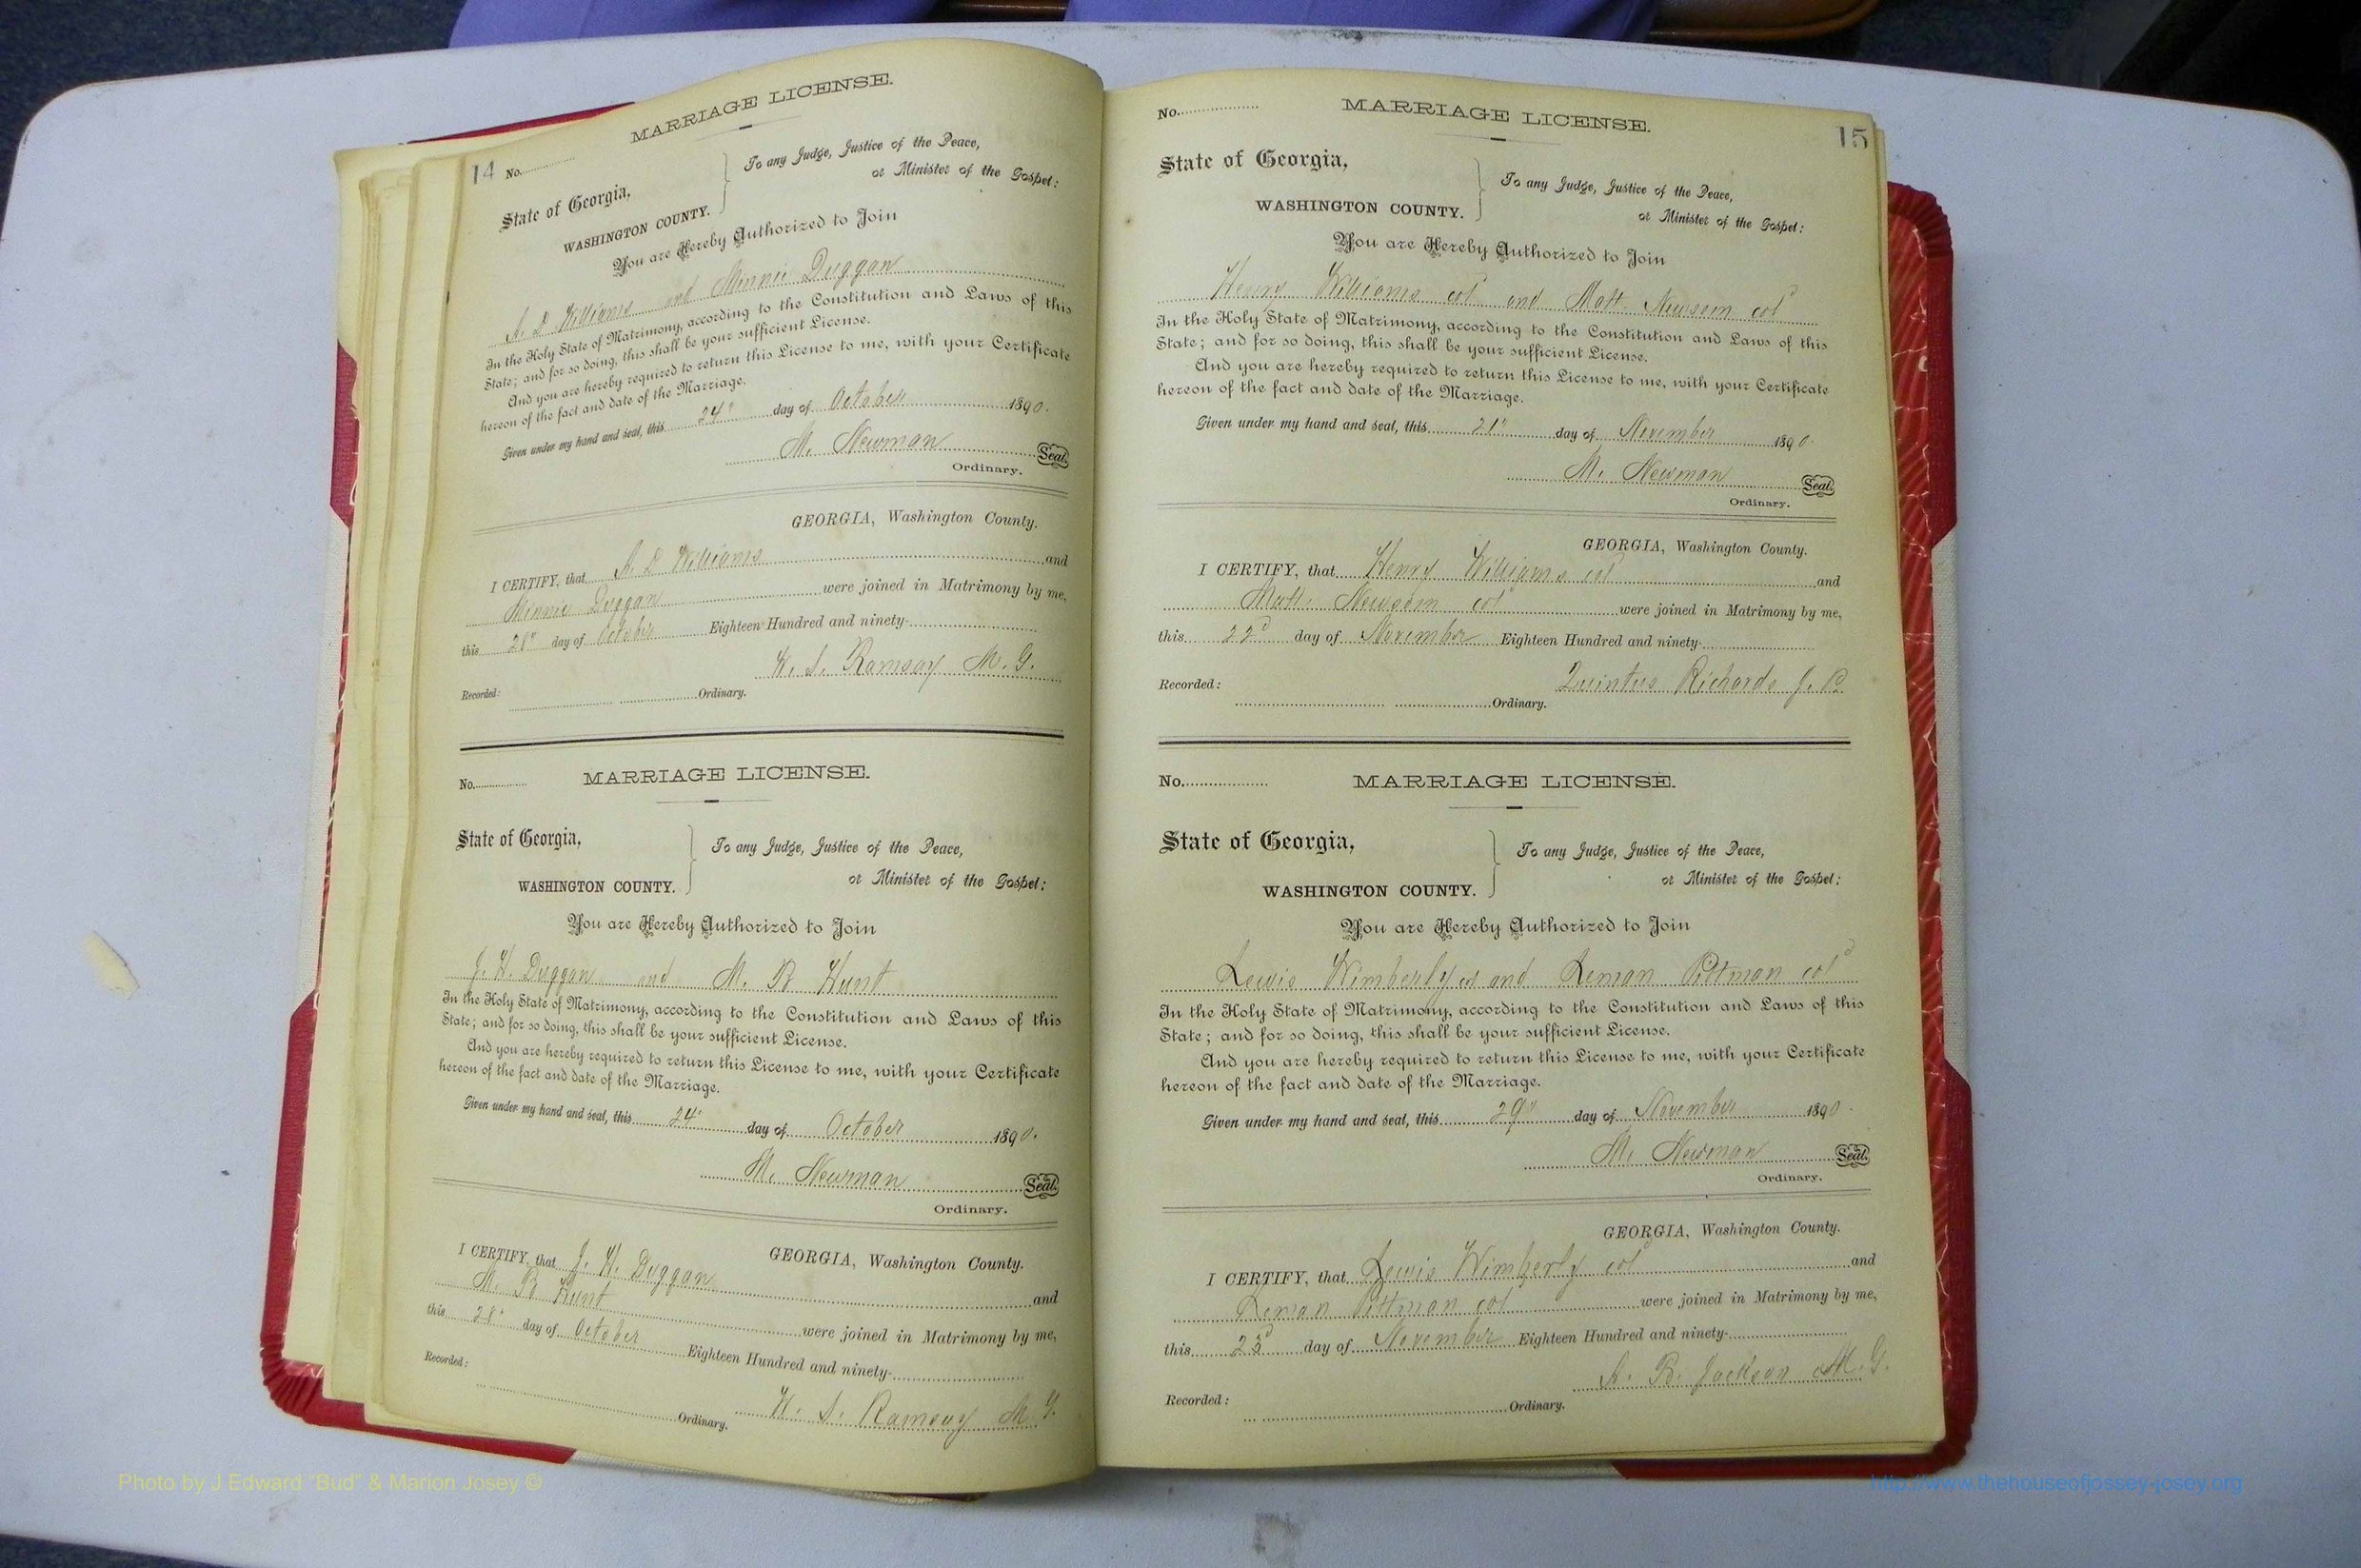 MARRIAGE LICENSE.
14 No.
State of Georgia,
WASHINGTON COUNTY.
To any Judge, Justice of the Peace,
or Minister of the Gospel:
You are Hereby Authorized to Join
A. D Williams and Minnie Duggan
In the Holy State of Matrimony, according to the Constitution and Laws of this
State; and for so doing, this shall be your sufficient License.
And you are hereby required to return this License to me, with your Certificate
hereon of the fact and date of the Marriage.
Given under my hand and seal, this 24" day of October 1890.
M. Newman Seal.
Ordinary.
GEORGIA, Washington County.
I CERTIFY, that A. D Williams and
Minnie Duggan were joined in Matrimony by me,
this 28" day of October Eighteen Hundred and ninety-
W. S. Ramsay M. G.
Recorded: Ordinary.
No. MARRIAGE LICENSE.
State of Georgia,
WASHINGTON COUNTY.
To any Judge, Justice of the Peace,
or Minister of the Gospel:
You are Hereby Authorized to Join
J. H. Duggan and M. B Hunt
In the Holy State of Matrimony, according to the Constitution and Laws of this
State; and for so doing, this shall be your sufficient License.
And you are hereby required to return this License to me, with your Certificate
hereon of the fact and date of the Marriage.
Given under my hand and seal, this 24" day of October 1890.
M. Newman Seal.
Ordinary.
GEORGIA, Washington County.
I CERTIFY, that J. H. Duggan and
M. B Hunt were joined in Matrimony by me,
this 28" day of October Eighteen Hundred and ninety-
W. S. Ramsay M G.
Recorded: Ordinary.
No. MARRIAGE LICENSE.
15
State of Georgia,
WASHINGTON COUNTY.
To any Judge, Justice of the Peace,
or Minister of the Gospel:
You are Hereby Authorized to Join
Henry Williams cold and Matt. Newsom cold
In the Holy State of Matrimony, according to the Constitution and Laws of this
State; and for so doing, this shall be your sufficient License.
And you are hereby required to return this License to me, with your Certificate
hereon of the fact and date of the Marriage.
Given under my hand and seal, this 21" day of November 1890.
M. Newman Seal.
Ordinary.
GEORGIA, Washington County.
I CERTIFY, that Henry Williams cold and
Matt. Newsom cold were joined in Matrimony by me,
this 22d day of November Eighteen Hundred and ninety-
Quintus Richards J. P.
Recorded: Ordinary.
No. MARRIAGE LICENSE.
State of Georgia,
WASHINGTON COUNTY.
To any Judge, Justice of the Peace,
or Minister of the Gospel:
You are Hereby Authorized to Join
Lewis Wimberly cd and Leman Pittman cold
In the Holy State of Matrimony, according to the Constitution and Laws of this
State; and for so doing, this shall be your sufficient License.
And you are hereby required to return this License to me, with your Certificate
hereon of the fact and date of the Marriage.
Given under my hand and seal, this 29" day of November 1890.
M. Newman Seal.
Ordinary.
GEORGIA, Washington County.
I CERTIFY, that Lewis Wimberly cold and
Leman Pittman cold were joined in Matrimony by me,
this 23d day of November Eighteen Hundred and ninety-
A. B. Jackson M. G.
Recorded: Ordinary.
Photo by J Edward "Bud" & Marion Josey ©
http://www.thehouseofjossey-josey.org